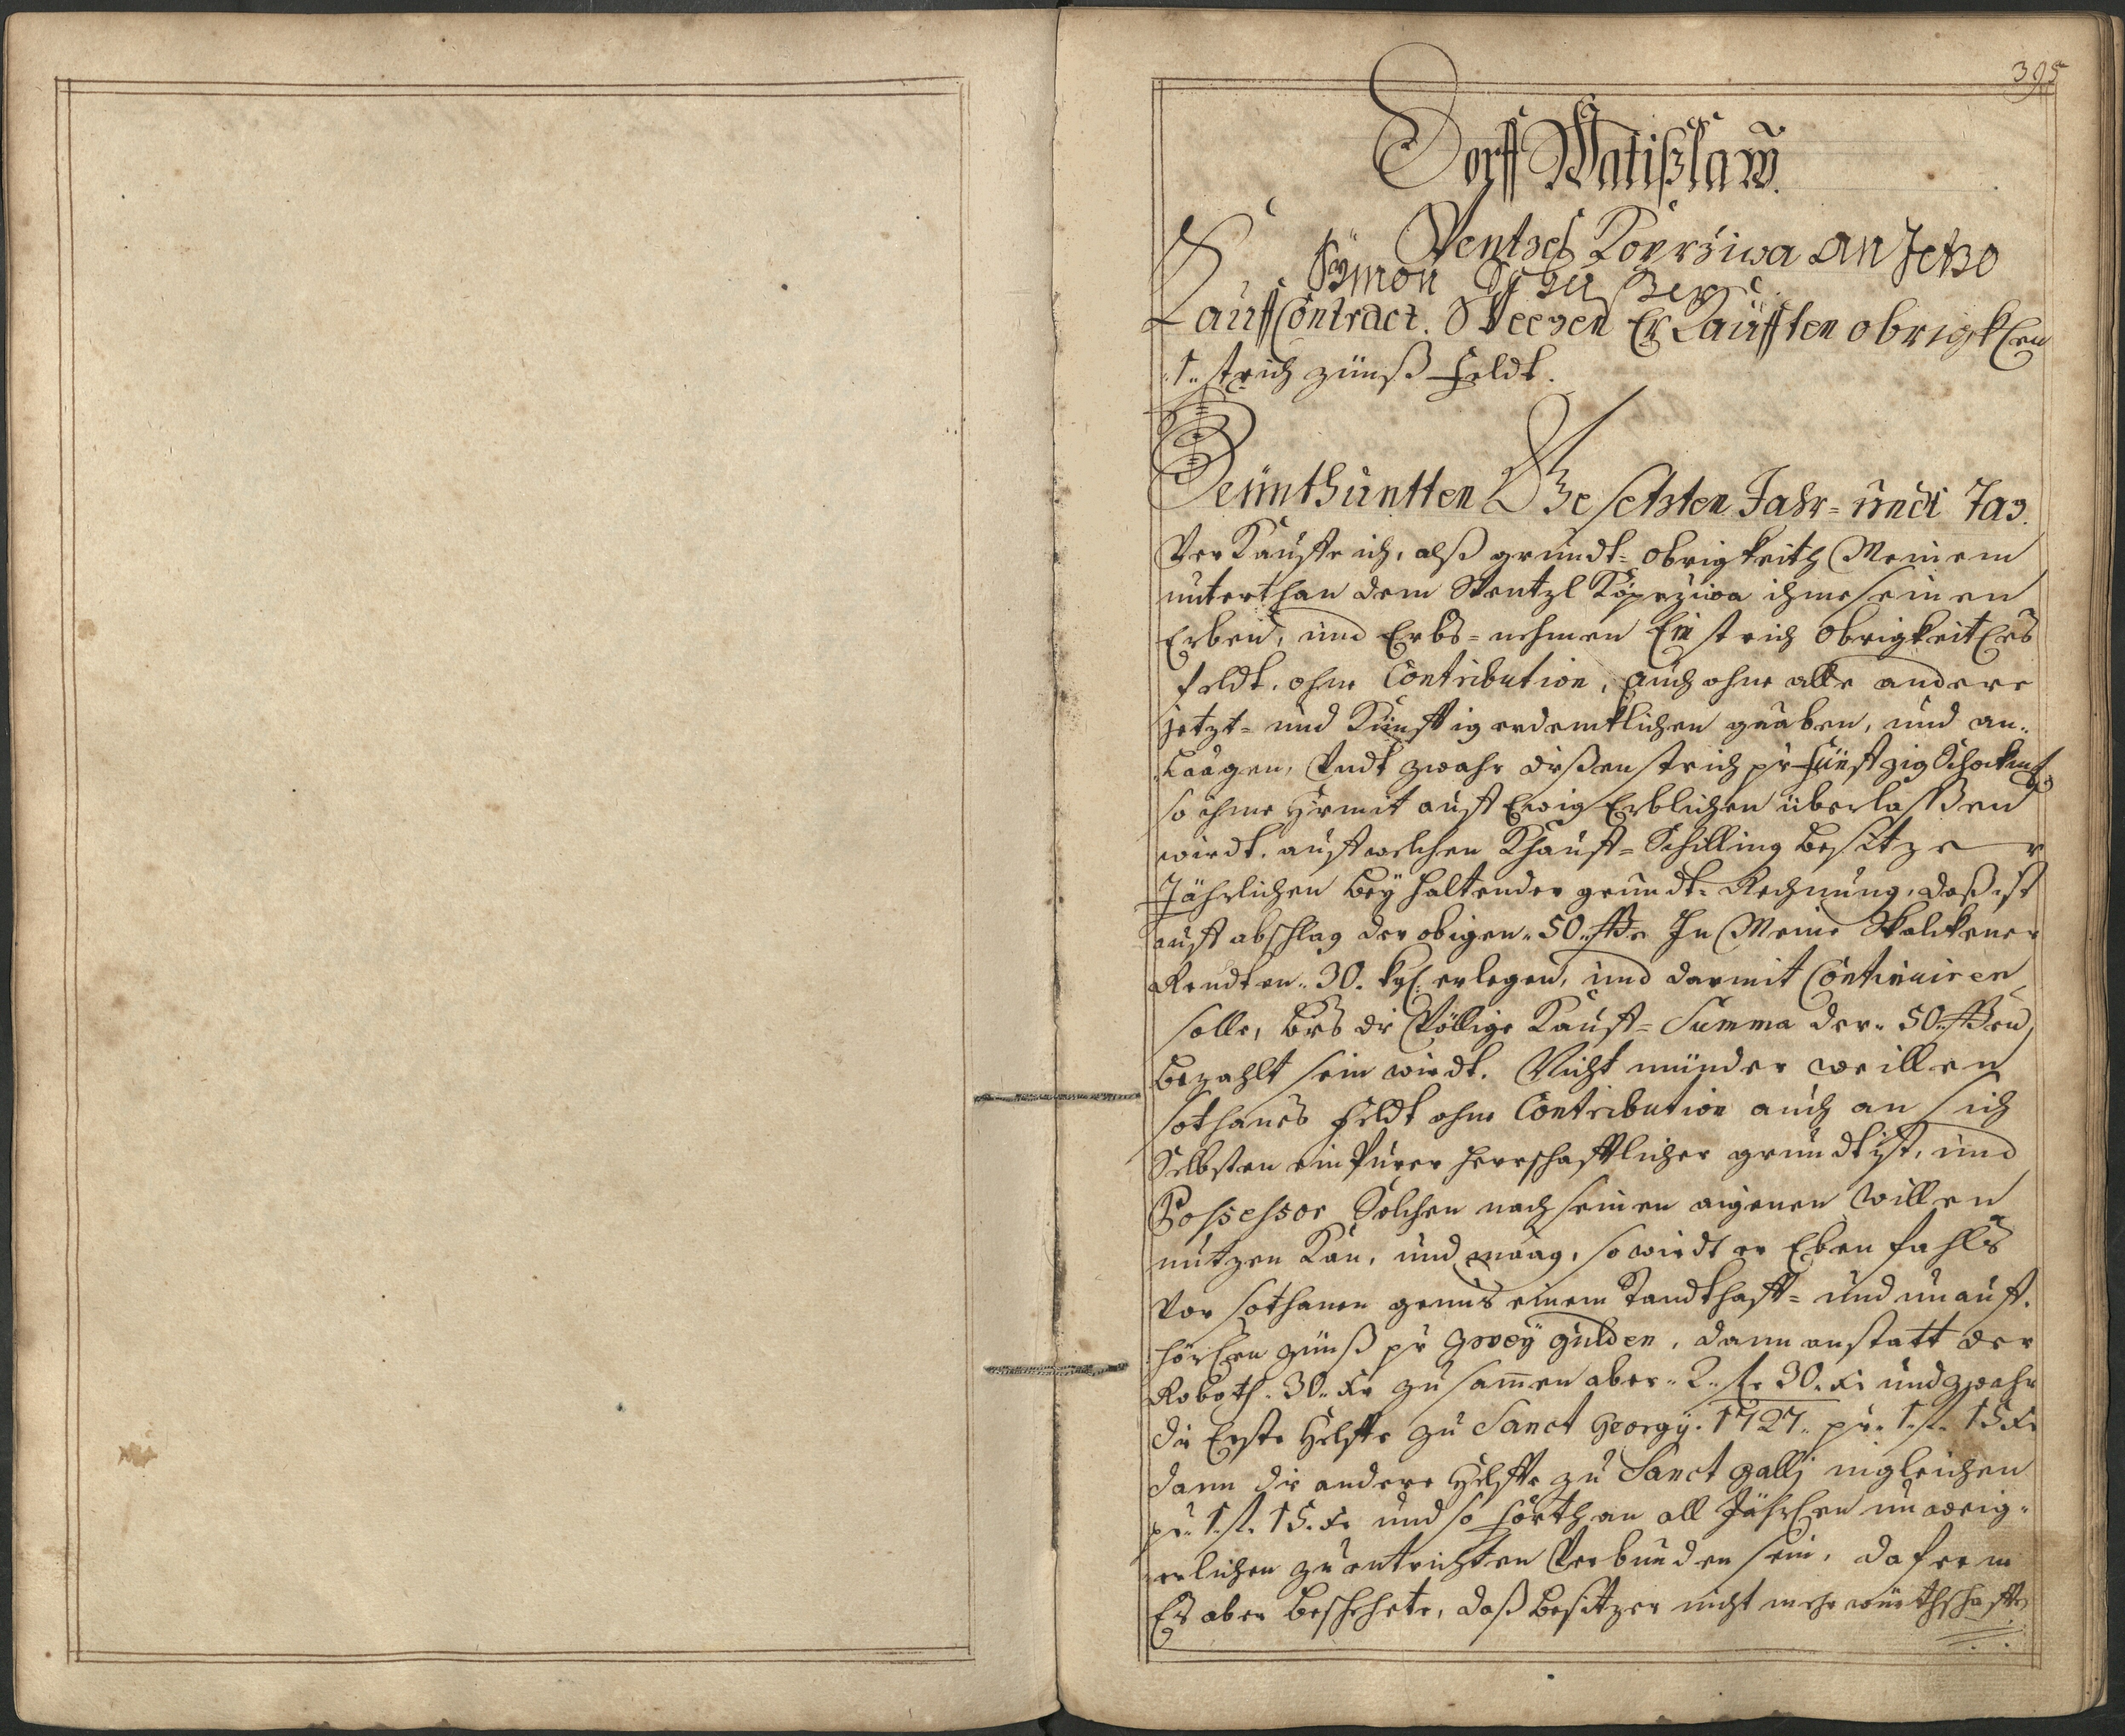 395
Dorff Watißlaw.
Wentzel Koprziwa an Jetzo
Symon
Kauff Contract. Weegen Erkaufften obrigkhen
1. strich zünß feldt.
Heünthuntten Gesetzten Jahr- undt Tag.
Verkauffe ich, alß grundt-obrigkeith Meinem
unterthan dem Wentzl Koprziwa ihme seinen
Erben, und Erbs-nehmen Ein strich obrigkeitlhs
feldt, ohne Contribution, auch ohne alle andere
jetzt- und künfftig erdenklichen gaaben, und an-
laagen, Undt zwahr dißen strich pr fünffzig Schockmß
so ihme hirmit auff Ewig Erblichen überlaßen
wirdt, auff welchen Khauff-Schilling besitzer
Jährlichen bey haltender grundt-Rechnung, daß ist
auff abschlag der obigen 50 ßo In Meine Walckener
Rendten 30. kr. erlegen, und darmit Continuiren
solle, biß die Völlige Kauff-Summa der 50 ßen
bezahlt sein wirdt. Nicht münder weillen
sothanes feldt ohne Contribution auch an sich
Selbsten ein Purer herrschafftlicher grundt ist, und
Possessor Solchen nach seinen aigenen willen
nutzen kan, und maag, so wirdt er Eben fahls
vor sothanen genus einem Standthafft- und unauff-
hörlhen zünß pr zwey gulden, dann anstatt der
Roboth 30. kr zusam̄en aber 2. fl. 30. kr und zwahr
die Erste helffte zu Sanct Georgÿ 1727. pr. 1. fl. 15 kr
dann die andere helffte zu Sanct Gallj ingleichen
pr. 1. fl. 15. kr und so forthan all Jährlhen unweig-
erlichen zu entrichten Verbunden sein, dafern
Es aber beschehete, daß besitzer nicht mehr würthschaffte